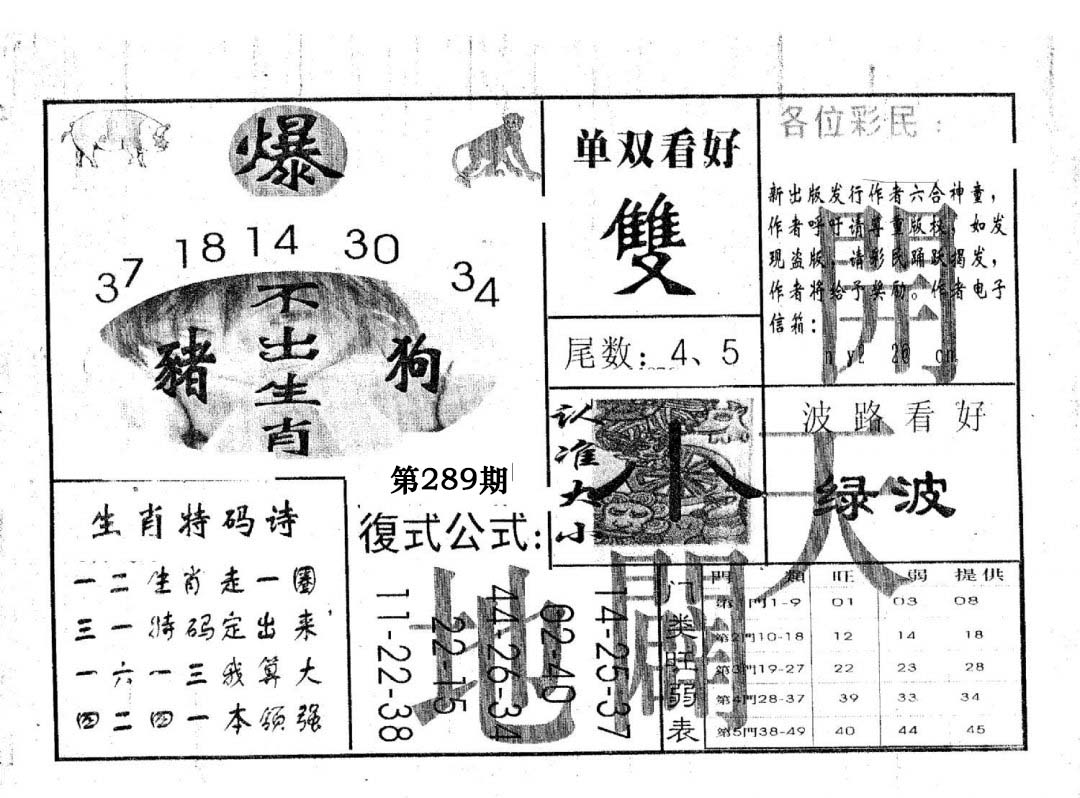 爆
37 18 14 30 34
不出生肖
豬
狗
第289期
单双看好
雙
尾数：4、5
各位彩民：
新出版发行作者六合神童，
作者呼吁请尊重版权，如发
现盗版，请彩民踊跃揭发，
作者将给予奖励。作者电子
信箱：
開
天
地
開
认准大小
小
波路看好
绿波
生肖特码诗
一二生肖走一圈
三一特码定出来
一六一三我算大
四二四一本领强
復式公式:
11-22-38
22-15
44-26-34
02-40
14-25-37
门类旺弱表
門 類 旺 弱 提供
第1門1-9 01 03 08
第2門10-18 12 14 18
第3門19-27 22 23 28
第4門28-37 39 33 34
第5門38-49 40 44 45